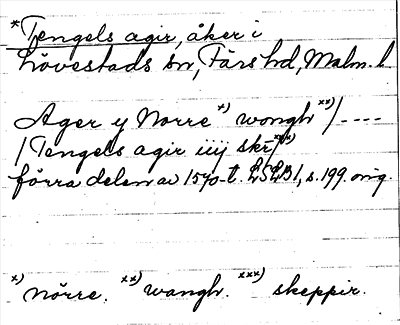 *Tengels agir, åker i
Lövestads sn, Färs hd, Malm. l.
Ager y Norre x) wongh xx) /----
/ Tengels agir iiij skr/ xxx)
förra delen av 1570-t. LSLB 1, s. 199. orig.
x) nörre. xx) wangh. xxx) skeppir.